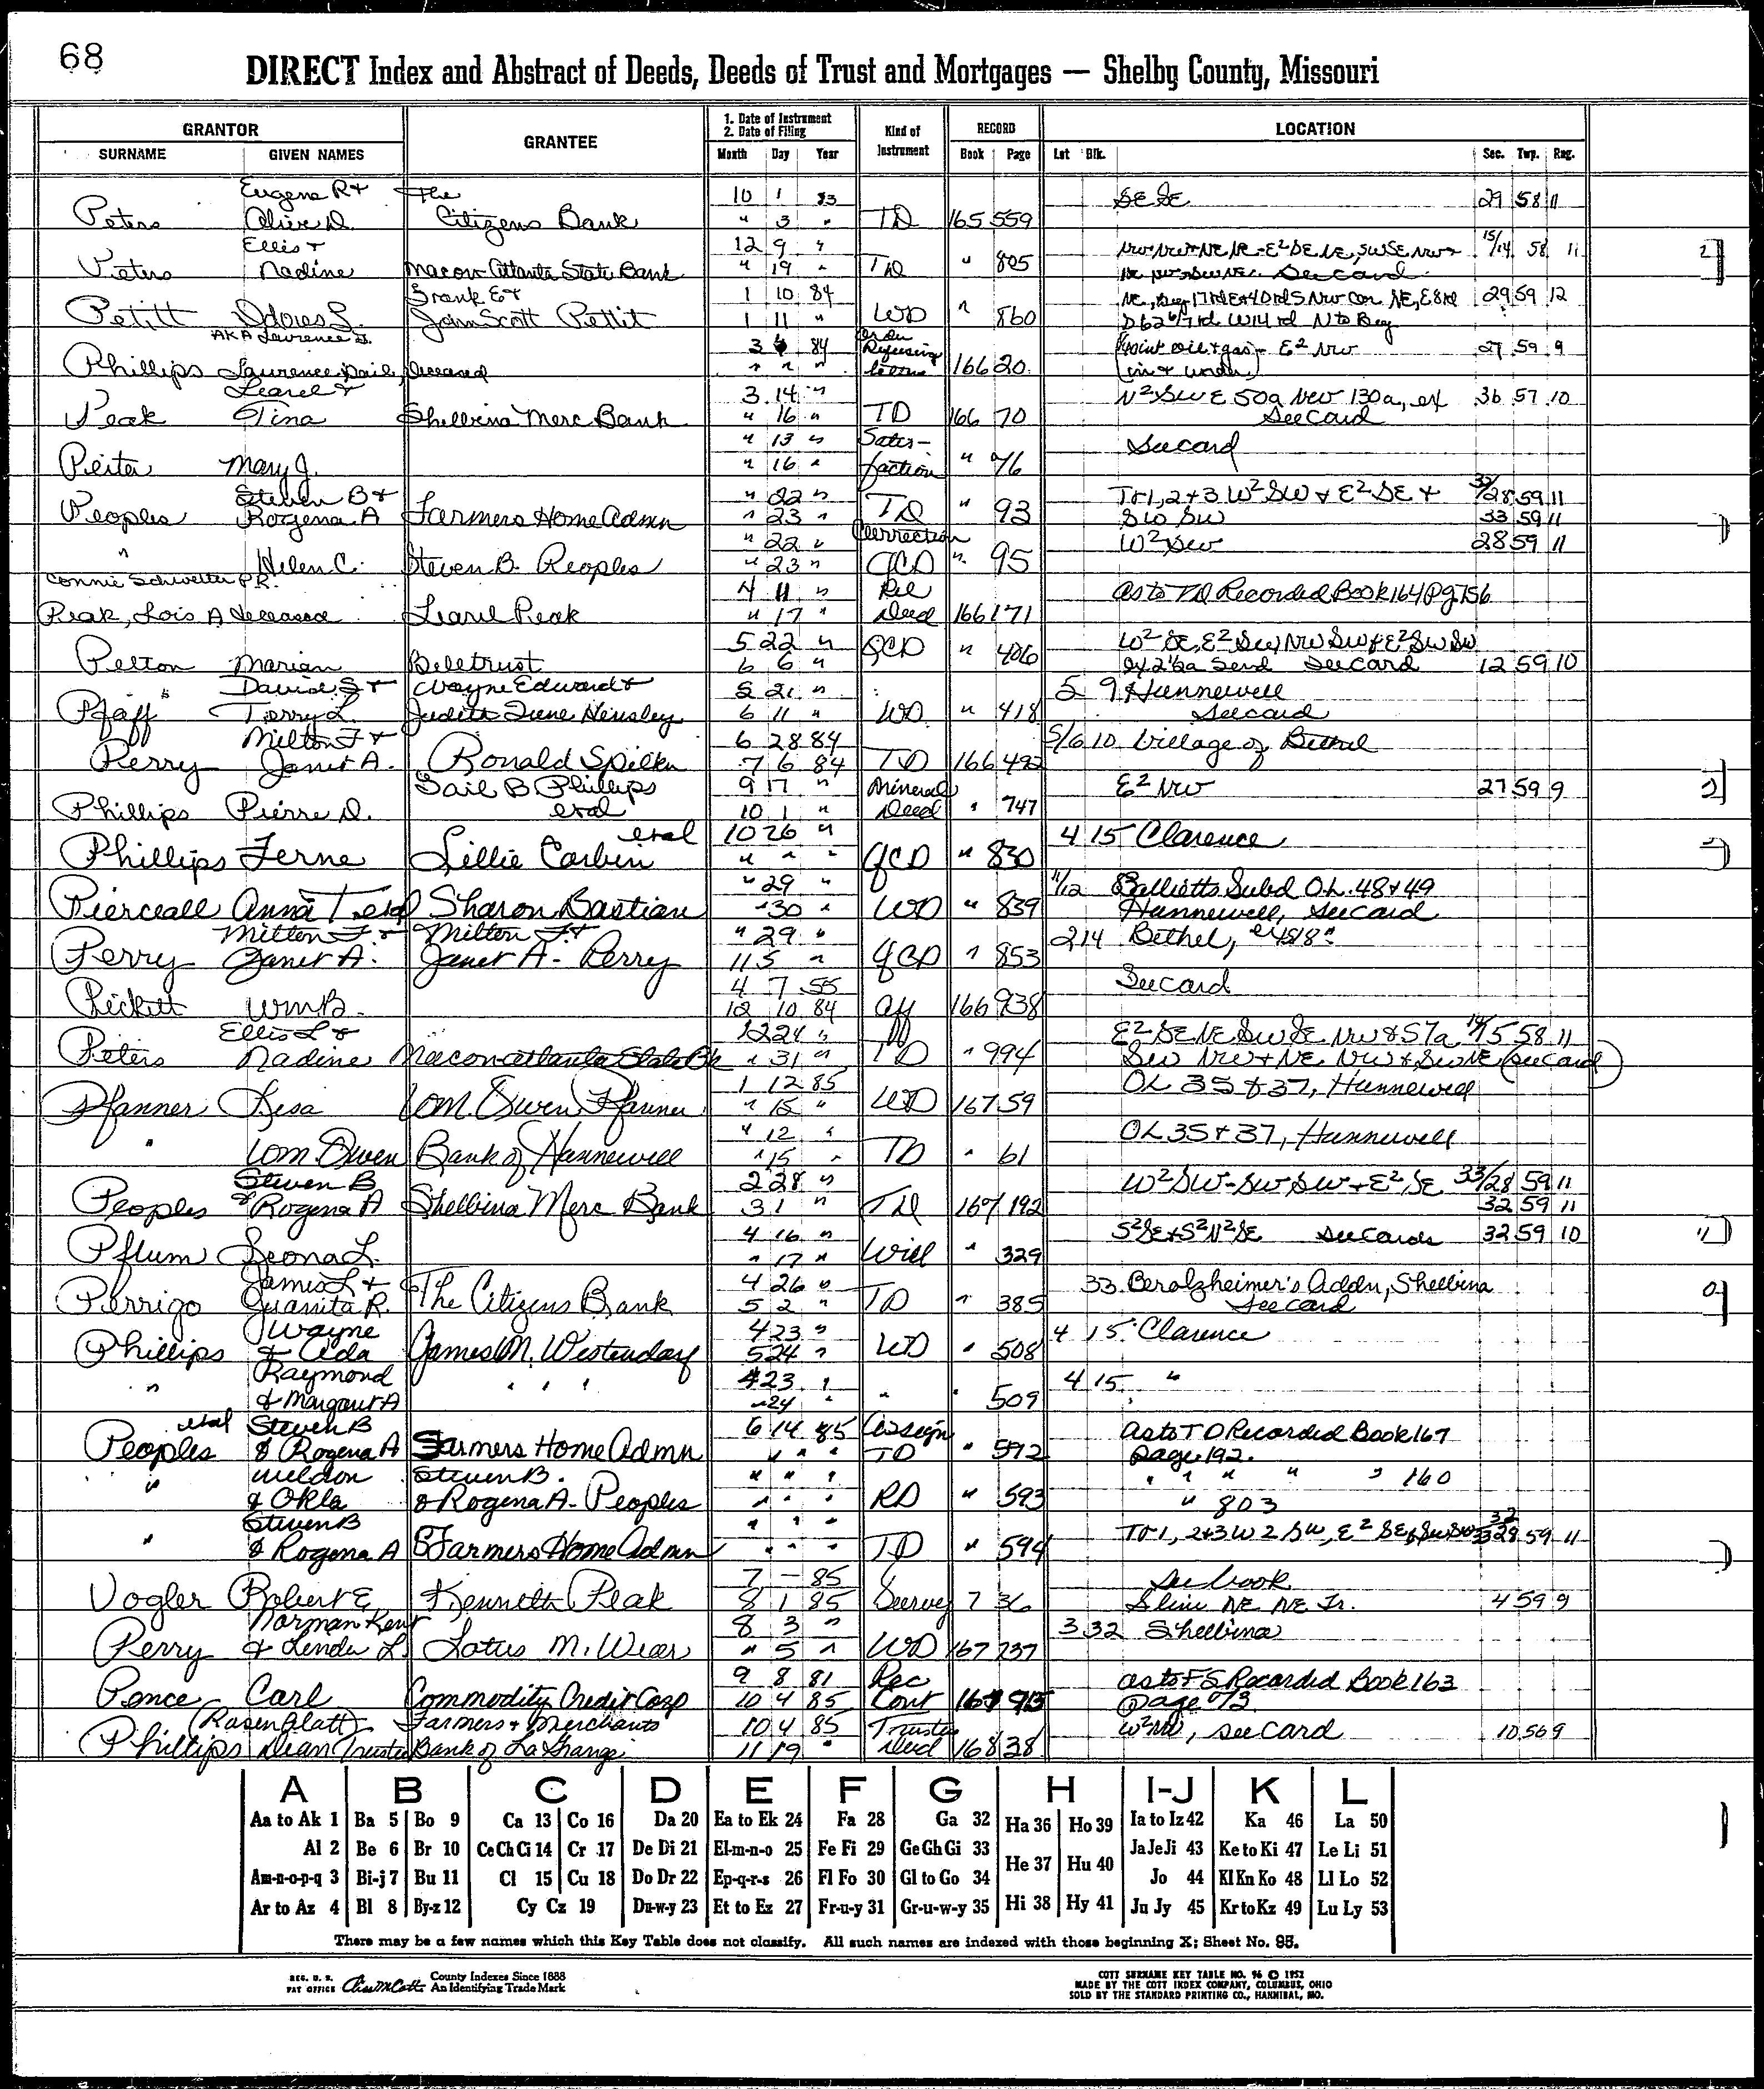 68
DIRECT Index and Abstract of Deeds, Deeds of Trust and Mortgages — Shelby County, Missouri
GRANTOR GRANTEE 1. Date of Instrument 2. Date of Filing Kind of Instrument RECORD LOCATION
SURNAME GIVEN NAMES Month Day Year Book Page Lot Blk. Sec. Twp. Rng.
Eugene R + The 10 1 83 SE SE 29 58 11
Peters Olive D. Citizens Bank " 3 " TD 165 559
Ellis + 12 9 " 15/14 58 11
Peters Nadine Macon Atlanta State Bank " 19 " TD " 805 See card
Frank E + 1 10 84 29 59 12
Petitt Dores L. John Scott Pettit 1 11 " WD " 860
AKA Lawrence G. 3 84 Order Refusing E2 NW 27 59 9
Phillips Laurence Gail, Deceased " " " letters 166 20
Learel + 3 14 " N2 SW E 50a NW 130a, ex 36 57 10
Peak Tina Shelbina Merc Bank " 16 " TD 166 70 See Card
" 13 " Satis- See card
Peiter Mary J. " 16 " faction " 76
Steven B + " 22 " Tr 1, 2 + 3 W2 SW + E2 SE + 32/28 59 11
Peoples Rogena A Farmers Home Admn " 23 " TD " 93 SW SW 33 59 11
" 22 " Correction W2 SW 28 59 11
" Helen C. Steven B. Peoples " 23 " QCD " 95
Connie Schwetter P.R. 4 11 " Rel as to TD Recorded Book 164 Pg 756
Peak, Lois A deceased Learel Peak " 17 " Deed 166 171
5 22 " W2 SE, E2 SW, NW SW & E2 SW SW
Pelton Marian Beletrust 6 6 " QCD " 406 See card 12 59 10
David S + Wayne Edward + 5 21 " 5 9 Hunnewell
Pfaff Terry L. Judith June Hensley 6 11 " WD " 418 See card
Milton F + 6 28 84 5/6 10 Village of Bethel
Perry Janet A. Ronald Spilker 7 6 84 TD 166 492
Gail B Phillips 9 17 " Mineral E2 NW 27 59 9
Phillips Pierre D. etal 10 1 " Deed " 747
etal 10 26 " 4 15 Clarence
Phillips Ferne Lillie Corbin " " " QCD " 830
" 29 " 11/12 Ballietts Subd O.L. 48 + 49
Pierceall Anna T etal Sharon Bastian " 30 " WD " 839 Hunnewell, See card
Milton F. + Milton F. + " 29 " 2 14 Bethel,
Perry Janet A. Janet A. Perry 11 5 " QCD " 853
4 7 55 See card
Pickett Wm B. 12 10 84 Aff 166 938
Ellis L + 12 24 " E2 SE NE SW SE NW & 57a 14/15 58 11
Peters Nadine Macon-Atlanta State Bk " 31 " TD " 994 SW NW + NE NW & SW NE (See card)
1 12 85 OL 35 & 37, Hunnewell
Pfanner Lisa Wm. Owen Pfanner " 15 " WD 167 59
" 12 " OL 35 + 37, Hunnewell
" Wm. Owen Bank of Hunnewell " 15 " TD " 61
Steven B 2 28 " W2 SW - SW SW + E2 SE 33/28 59 11
Peoples & Rogena A Shelbina Merc Bank 3 1 " TD 167 192 32 59 11
4 16 " S2 SE & S2 N2 SE See Cards 32 59 10
Pflum Leona L. " 17 " Will " 329
James L + 4 26 " 33 Berolzheimer's Addn, Shelbina
Perrigo Juanita R. The Citizens Bank 5 2 " TD " 385 See card
Wayne 4 23 " 4 15 Clarence
Phillips & Ada James M. Westendorf 5 24 " WD " 508
Raymond 4 23 " 4 15 "
" & Margaret A " " " " 24 " " " 509
etal Steven B 6 14 85 Assign as to TD Recorded Book 167
Peoples & Rogena A Farmers Home Admn " " " TD " 592 page 192.
Weldon Steven B. " " " " " " " " 160
" & Okla & Rogena A. Peoples " " " RD " 593 " 803
Steven B " " " Tr 1, 2+3 W2 SW, E2 SE & SW SW 32 33 28 59 11
" & Rogena A Farmers Home Admn " " " TD " 594
7 - 85 See book
Vogler Robert E. Kenneth Peak 8 1 85 Survey 7 36 S line NE NE Fr. 4 59 9
Norman Kent 8 3 " 3 32 Shelbina
Perry & Linda L. Lotus M. Wear " 5 " WD 167 737
9 8 81 Rec as to FS Recorded Book 163
Pence Carl Commodity Credit Corp 10 4 85 Cont 167 915 page 073
(Rosenblatt) Farmers + Merchants 10 4 85 Trustee W2 NW, see card 10 56 9
Phillips Dean Trustee Bank of La Grange 11 19 " Deed 168 38
A B C D E F G H I-J K L
Aa to Ak 1 Ba 5 Bo 9 Ca 13 Co 16 Da 20 Ea to Ek 24 Fa 28 Ga 32 Ha 36 Ho 39 Ia to Iz 42 Ka 46 La 50
Al 2 Be 6 Br 10 Ce Ch Ci 14 Cr 17 De Di 21 El-m-n-o 25 Fe Fi 29 Ge Gh Gi 33 He 37 Hu 40 Ja Je Ji 43 Ke to Ki 47 Le Li 51
Am-n-o-p-q 3 Bi-j 7 Bu 11 Cl 15 Cu 18 Do Dr 22 Ep-q-r-s 26 Fl Fo 30 Gl to Go 34 Jo 44 Kl Kn Ko 48 Ll Lo 52
Ar to Az 4 Bl 8 By-z 12 Cy Cz 19 Du-w-y 23 Et to Ez 27 Fr-u-y 31 Gr-u-w-y 35 Hi 38 Hy 41 Ju Jy 45 Kr to Kz 49 Lu Ly 53
There may be a few names which this Key Table does not classify. All such names are indexed with those beginning X; Sheet No. 95.
REG. U. S. PAT OFFICE County Indexes Since 1888 An Identifying Trade Mark
COTT SURNAME KEY TABLE NO. 96 © 1952
MADE BY THE COTT INDEX COMPANY, COLUMBUS, OHIO
SOLD BY THE STANDARD PRINTING CO., HANNIBAL, MO.